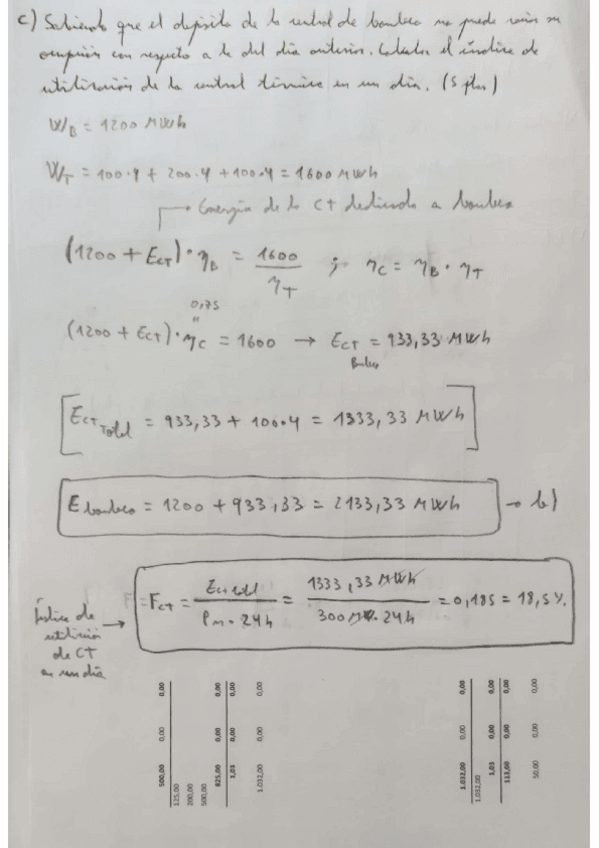 c) Sabiendo que el depósito de la central de bombeo no puede variar su
ocupación con respecto a la del día anterior. Calcular el índice de
utilización de la central térmica en un día. (5 ptos)
W_B = 1200 MWh
W_T = 100·4 + 200·4 + 100·4 = 1600 MWh
Energía de la CT dedicada a bombeo
(1200 + E_CT)·η_B = 1600/η_T ; η_C = η_B · η_T
0,75
"
(1200 + E_CT)·η_C = 1600 → E_CT = 933,33 MWh
Bombeo
E_CT Total = 933,33 + 100·4 = 1333,33 MWh
E bombeo = 1200 + 933,33 = 2133,33 MWh → b)
Índice de
utilización
de CT
en un día
→ F_CT = E_CT total / P_M · 24h = 1333,33 MWh / 300 MW · 24h = 0,185 = 18,5 %
500,00 0,00 0,00
125,00
200,00
500,00
825,00 0,00 0,00
1,03 0,00 0,00
1.032,00 0,00 0,00
1.032,00 0,00 0,00
1.032,00
1,03 0,00 0,00
113,00 0,00 0,00
50,00 0,00 0,00